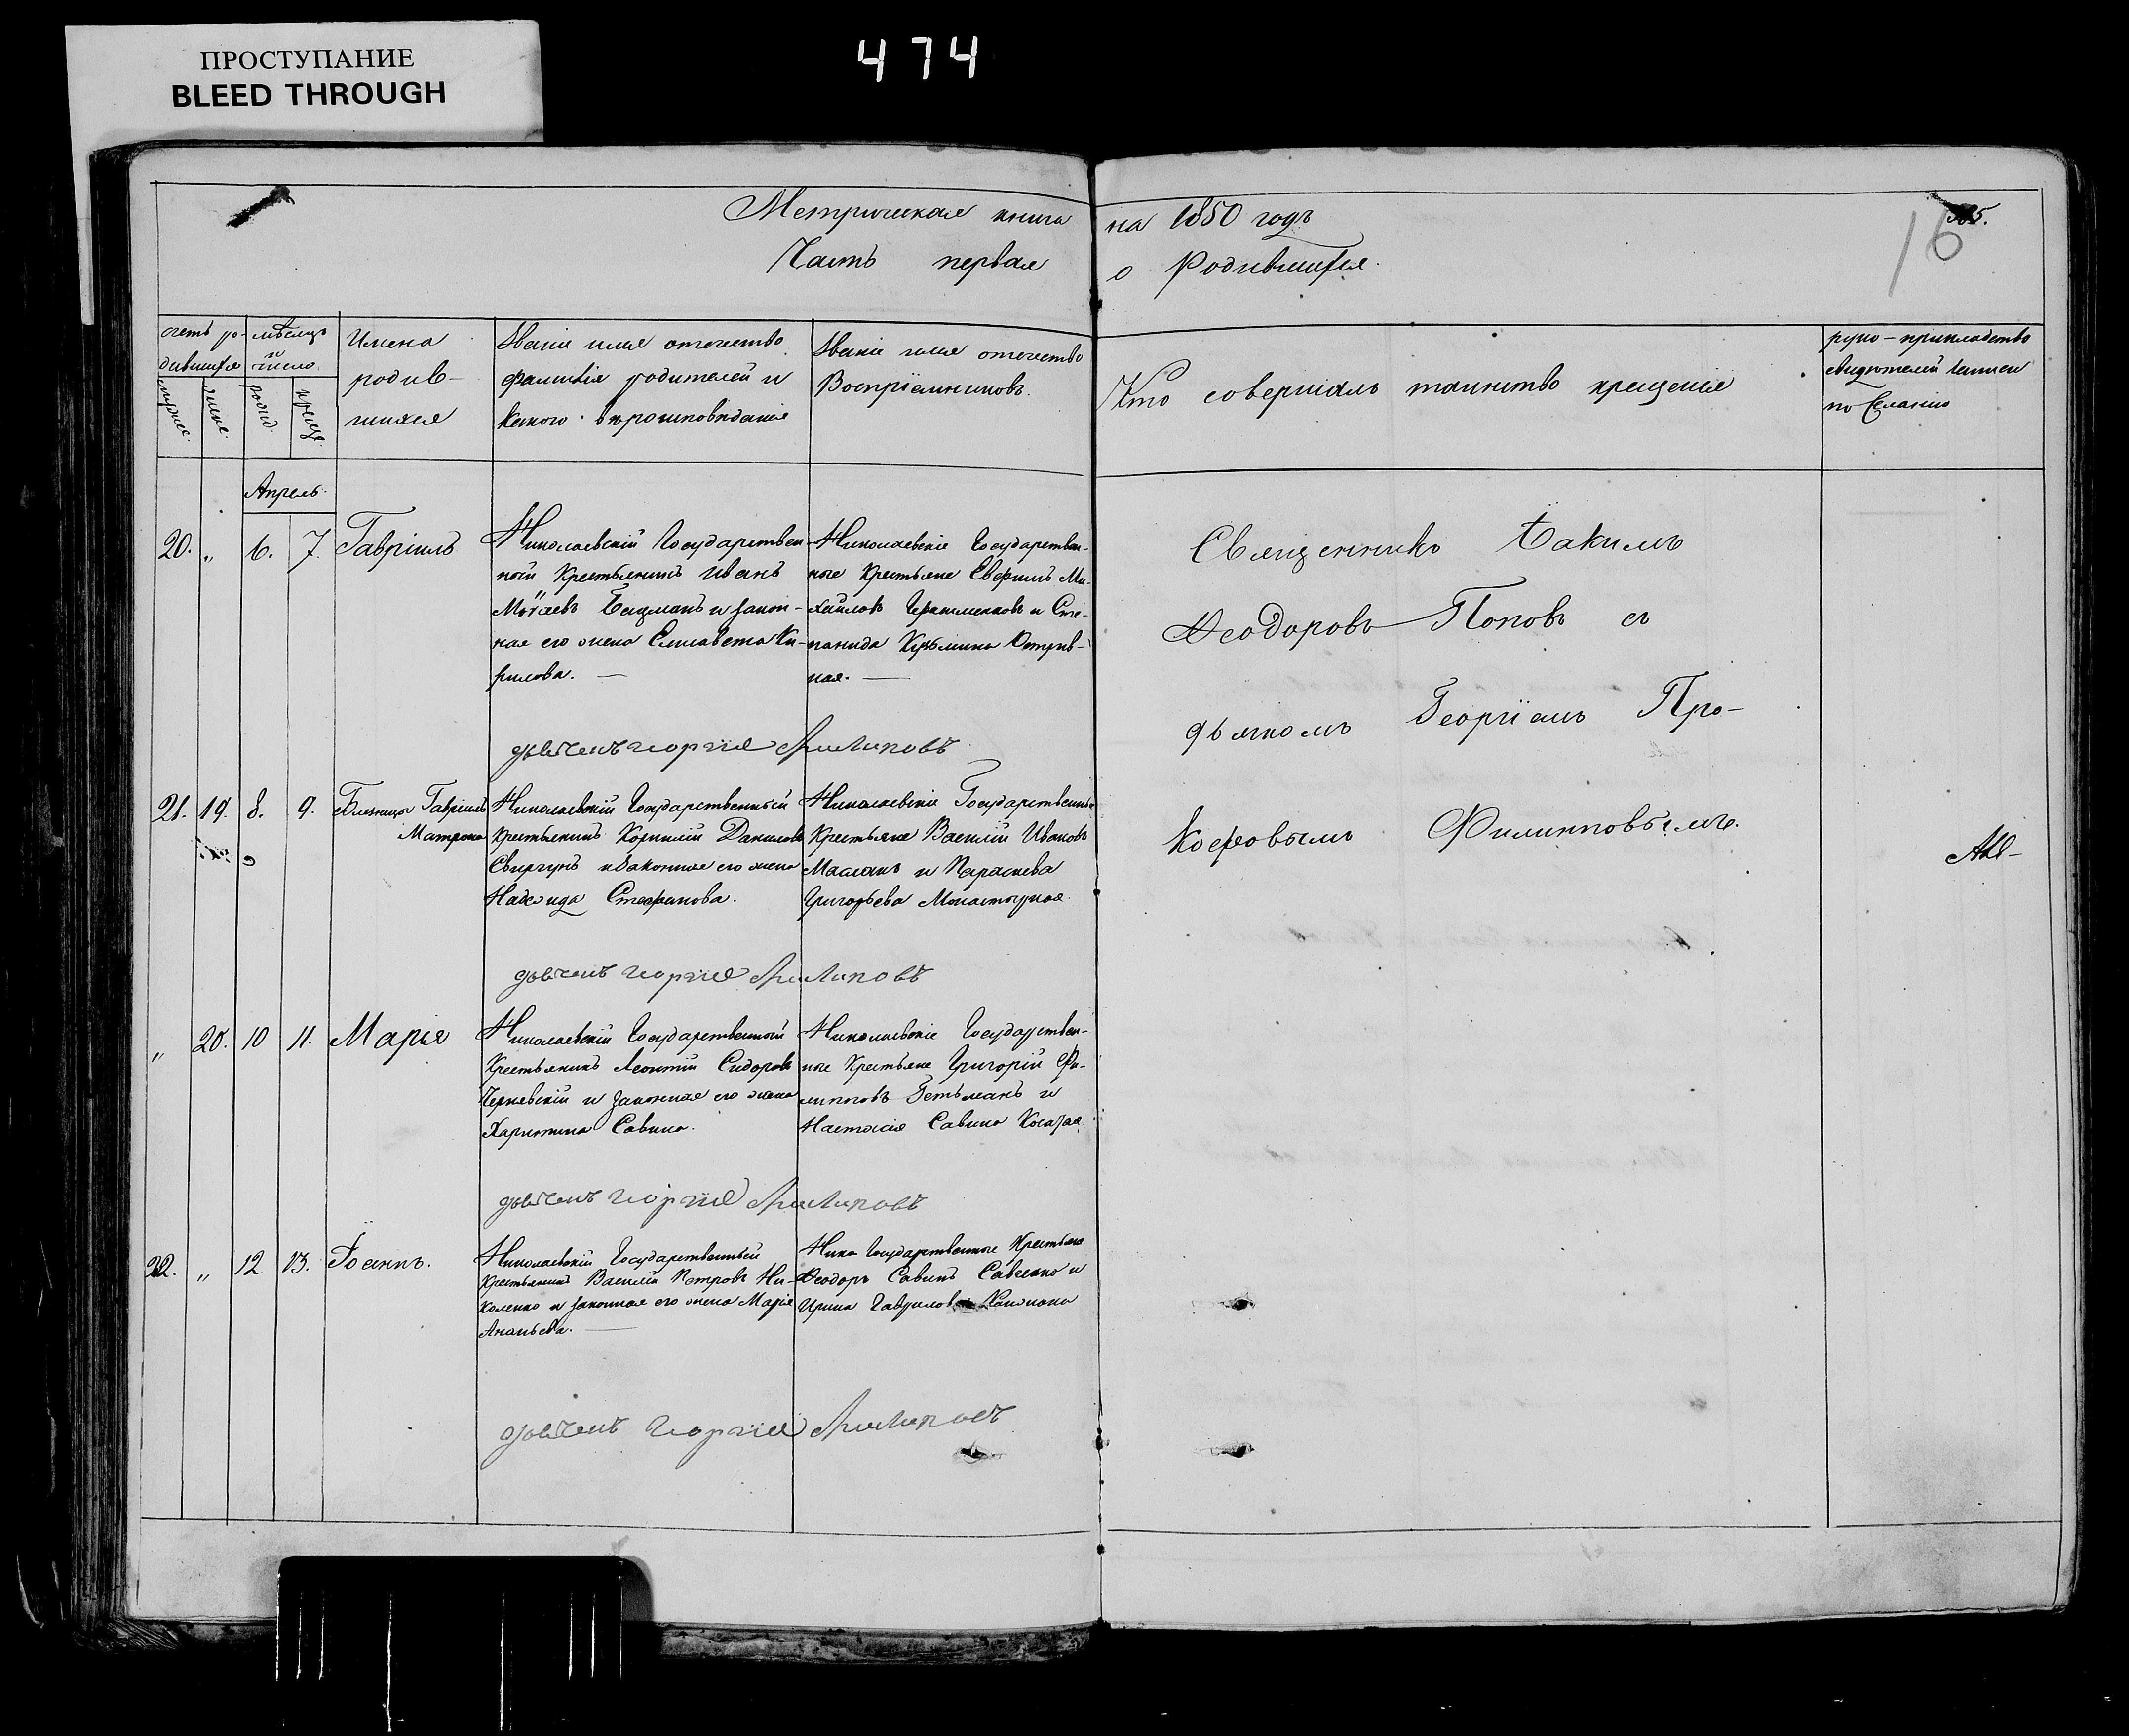 ПРОСТУПАНИЕ
BLEED THROUGH
474
Метрическая книга на 1850 годъ
Часть первая о Родившихся.
16
счетъ ро-
дившихся
мѣсяцъ
и
число
Имена
родив-
шихся
Званіе имя отчество
фамилія родителей и
Какого вѣроисповѣданія
Званіе имя отчество
Воспріемниковъ.
Кто совершалъ таинство крещенія
руко-прикладство
свидѣтелей записи
по желанію
Апрель.
20. „ 6. 7. Гавріилъ
Николаевскій Государствен-
ный Крестьянинъ Иванъ
и закон-
ная его жена Елисавета Ки-
рилова. —
Николаевскіе Государствен-
ные Крестьяне Евфимъ Ми-
хайловъ и Сте-
панида
ная. —
дьячекъ георгий Филиповъ
21. 19. 8. 9. Близнецы Гавріилъ
Матрона
Николаевскій Государственный
Крестьянинъ Корнилій Даниловъ
Свиргунъ и Законная его жена
Надежда Стефанова.
Николаевскіе Государственные
Крестьяне Василій Ивановъ
Масланъ и Параскева
Григорьева Монастырная.
дьячекъ георгий Филиповъ
„ 20. 10 11. Марія
Николаевскій Государственный
Крестьянинъ Леонтій Сидоровъ
Чернявскій и законная его жена
Харитина Савина.
Николаевскіе Государствен-
ные Крестьяне Григорій Фи-
липповъ Гетьманъ и
Настасія Савина
дьячекъ георгий Филиповъ
22. „ 12. 13. Іоаннъ.
Николаевскій Государственный
Крестьянинъ Василій Петровъ Ни-
коленко и законная его жена Марія
Ананьева. —
Нико Государственные Крестьяне
Феодоръ Савинъ Савченко и
Ирина Гаврилова
дьячекъ георгий Филиповъ
Священникъ Іакимъ
Феодоровъ Поповъ съ
дьячкомъ Георгіемъ Про-
кофовымъ Филипповымъ.